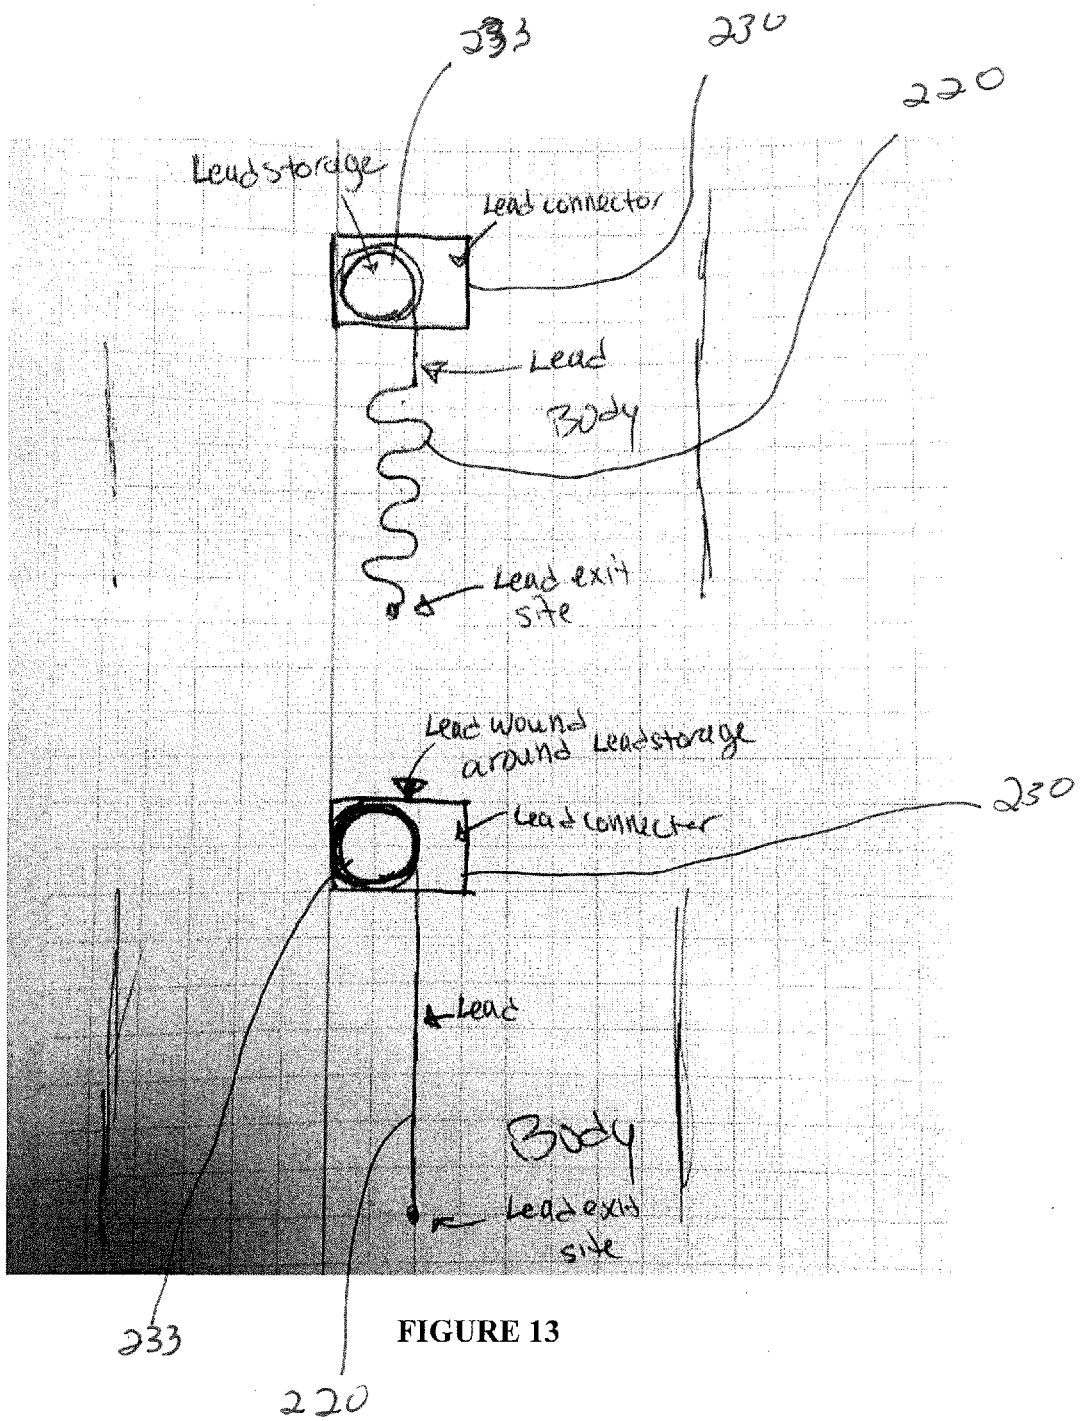 233
230
220
Leadstorage
Lead connector
Lead
Body
Lead exit
site
Lead wound
around Leadstorage
230
Lead connecter
Lead
Body
Lead exit
site
233
FIGURE 13
220